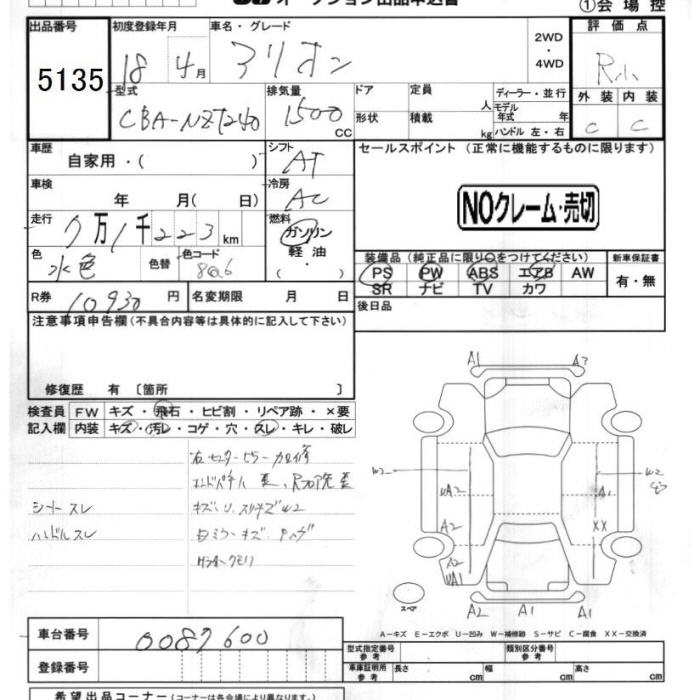 オークション出品申込書
①会場控
出品番号
5135
初度登録年月
18 4月
車名・グレード
アリオン
2WD
4WD
評価点
R
外装 内装
C C
型式
CBA-NZT240
排気量
1500 CC
ドア 形状
定員 人
積載 kg
ディーラー・並行
モデル年式 年
ハンドル 左・右
車歴
自家用・( )
シフト
AT
セールスポイント (正常に機能するものに限ります)
車検
年 月( 日)
冷房
AC
NOクレーム・売切
走行
7万1千223km
燃料
ガソリン
軽油・
色
水色
色替
色コード
8Q6
装備品(純正品に限り○をつけてください)
PS PW ABS エアB AW
SR ナビ TV カワ
新車保証書
有・無
R券
10930円
名変期限 月 日
後日品
注意事項申告欄(不具合内容等は具体的に記入して下さい)
修復歴 有 〔箇所 〕
検査員 記入欄
FW キズ・飛石・ヒビ割・リペア跡・×要
内装 キズ・汚レ・コゲ・穴・スレ・キレ・破レ
シートスレ
ハンドルスレ
A1 A3
W2 UA2 A2 A2 UA1
A1 XX W2
A2 A1 A1
スペア
A-キズ E-エクボ U-凹み W-補修跡 S-サビ C-腐食 XX-交換済
車台番号
0087600
登録番号
型式指定番号 参考
類別区分番号 参考
車庫証明用 参考
長さ cm
幅 cm
高さ cm
希望出品コーナー(コーナーは各会場により異なります)